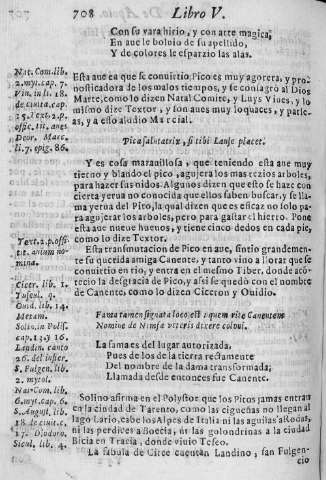 708 Libro V.
Con su vara hirio, y con arte magica,
En aue le boluio de su apellido,
Y de colores le esparzio las alas.
Nat. Com. lib.
2. myt. cap. 7.
Vin. in li. 18.
de ciuita. cap.
15. Text. 2. p.
offic. tit. aues
Deor. Marc.
li. 7. epig. 86.
Esta aue en que se conuirtio Pico es muy agorera, y pro-
nosticadora de los malos tiempos, y se consagrò al Dios
Marte, como lo dizen Natal Comite, y Luys Viues, y lo
mismo dize Textor, y son aues muy loquaces, y parle-
as, y a esto aludio Marcial.
Pica salutatrix, si tibi Lause placet.
Y es cosa marauillosa, que teniendo esta aue muy
tierno y blando el pico, agujera los mas rezios arboles,
para hazer sus nidos. Algunos dizen que esto se haze con
cierta yerua no conocida que ellos saben buscar, y se lla-
ma yerua del Pito, la qual dizen que es eficaz no solo pa-
ra agujerar los arboles, pero para gastar el hierro. Pone
esta aue nueue hueuos, y tiene cinco dedos en cada pie,
como lo dize Textor.
Text. 2. p. offi.
tit. auium no-
mina.
Esta transmutacion de Pico en aue, sintio grandemen-
te su querida amiga Canente, y tanto vino a llorar que se
conuirtio en rio, y entra en el mesmo Tiber, donde aco-
tecio la desgracia de Pico, y assi se quedò con el nombre
de Canente, como lo dizen Ciceron y Ouidio.
Cicer. lib. 1.
Tuscul. q.
Ouid. lib. 14.
Metam.
Fama tamen signata loco est: quem rite Canentem
Nomine de Nimfa viteris dixere coloni.
Solin. in Polis.
cap. 13. y 16.
Landin. canto
26. del infier.
S. Fulgen. lib.
2. mytol.
La fama es del lugar autorizada,
Pues de los de la tierra rectamente
Del nombre de la dama transformada,
Llamada desde entonces fue Canente.
Nat. Com. lib.
6. myt. cap. 6.
S. August. lib.
18. de ciuit. c.
17. Diodoro.
Sicul. lib. 4.
Solino afirma en el Polystor que los Picos jamas entran
en la ciudad de Tarento, como las cigueñas no llegan al
lago Lario, cabe los Alpes de Italia ni las aguilas a Rodas,
ni las perdices a Boecia, ni las golondrinas a la ciudad
Bicia en Tracia, donde viuio Tereo.
La fabula de Circe cuentan Landino, san Fulgen-
cio